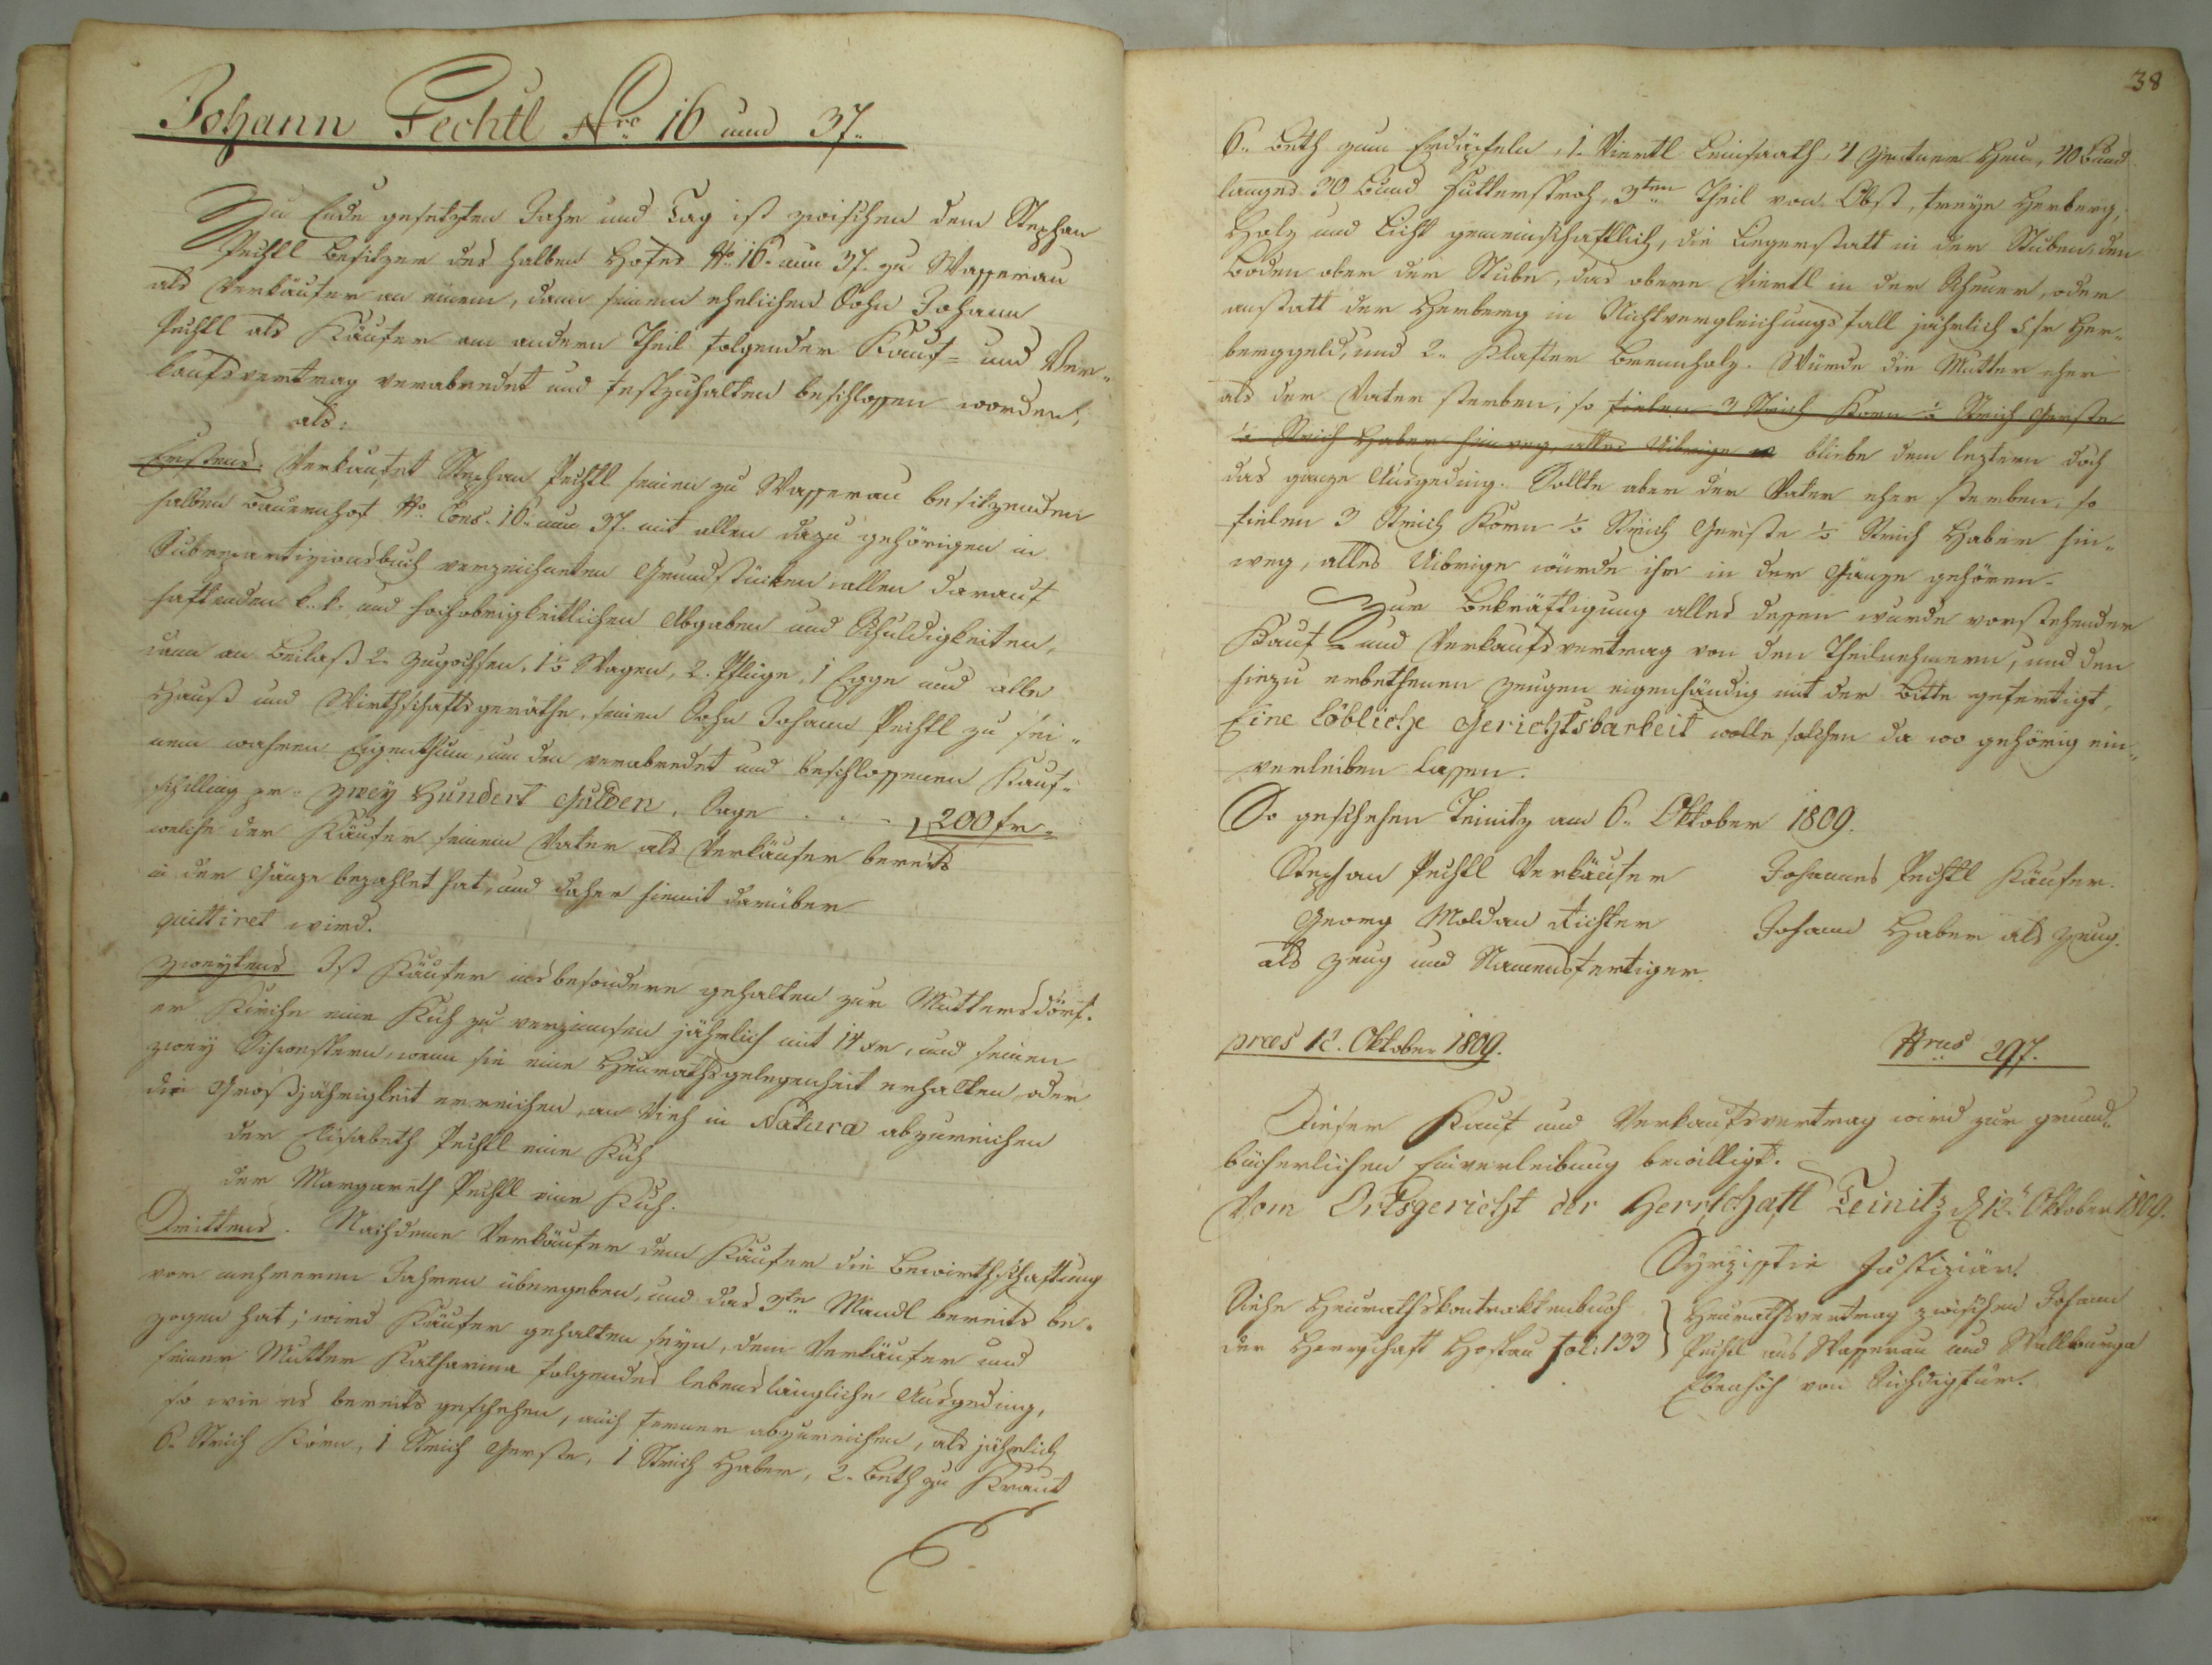 Johann Pechtl Nro 16 und 37.
Zu Ende gesetzten Jahr und Tag ist zwischen dem Stephan
Pechtl Besitzer des halben Hofes No 16. nun 37. zu Wasserau
als Verkäufer an einem, dann seinem ehelichen Sohn Johann
Pechtl als Käufer am andern Theil folgender Kauf- und Ver-
kaufsvertrag verabredet und festzuhalten beschlossen worden,
als:
Erstens. Verkaufet Stephan Pechtl seinen zu Wasserau besitzenden
halben Bauernhof No Cons. 16. nun 37. mit allen dazu gehörigen in
Subrepartizionsbuch verzeichneten Grundstücken allen darauf
haftenden k. k. und hochobrigkeitlichen Abgaben und Schuldigkeiten,
dann an Beilaß 2. Zugochsen, 1½ Wagen, 2. Pflüge, 1 Egge und alle
Hauß und Wirthschaftsgeräthe, seinen Sohn Johann Pechtl zu sei-
nem wahren Eigenthum, um den verabredet und beschlossenen Kauf-
schilling pr. Zwey Hundert Gulden, Sage . . . 200 fr
welche der Käufer seinem Vater als Verkäufer bereits
in der Gänze bezahlet hat, und daher hiemit darüber
quittiret wird.
Zweytens Ist Käufer insbesondere gehalten zur Muttersdorf-
er Kirche eine Kuh zu verzinsen jährlich mit 14 xr, und seinen
zwey Schwestern, wenn sie eine Heurathsgelegenheit erhalten, oder
die Großjährigkeit erreichen, an Vieh in Natura abzureichen
der Elisabeth Pechtl eine Kuh
der Margareth Pechtl eine Kuh.
Drittens. Nachdeme Verkäufer dem Käufer die Bewirthschaftung
vor mehreren Jahren übergeben, und das 3te Mandl bereits be-
zogen hat; wird Käufer gehalten seyn, dem Verkäufer und
seiner Mutter Katharina folgendes lebenslängliche Ausgeding,
so wie es bereits geschehen, auch ferner abzureichen, als jährlich
6. Strich Korn, 1 Strich Gerste, 1 Strich Haber, 2. Beth zu Kraut
38
6. Beth zum Erdäpfeln, 1. Viertl Leinsaath, 4 Zentner Heu, 40 Bund
langes 30 Bund Futterstroh, 3ten Theil von Obst, freye Herberg,
Holz und Licht gemeinschaftlich, die Liegerstatt in der Stuben, den
Boden ober der Stube, das obere Viertl in der Scheuer, oder
anstatt der Herberg in Nichtvergleichungsfall jährlich 5 fr Her-
berggeld, und 2. Klafter Brennholz. Würde die Mutter eher
als der Vater sterben, so fielen 3 Strich Korn ½ Strich Gerste
½ Strich Haber hinweg, alles Uibrige bliebe dem leztern doch
das ganze Ausgeding. Sollte aber der Vater eher sterben, so
fielen 3 Strich Korn ½ Strich Gerste ½ Strich Haber hin-
weg, alles Uibrige würde ihr in der Gänze gehören.
Zur Bekräftigung alles dessen wurde vorstehender
Kauf- und Verkaufsvertrag von den Theilnehmern, und den
hiezu erbethenen Zeugen eigenhändig mit der Bitte gefertigt,
Eine Löbliche Gerichtsbarkeit wolle solchen da wo gehörig ein-
verleiben lassen.
So geschehen Teinitz am 6. Oktober 1809.
Stephan Pechtl Verkäufer Johannes Pechtl Käufer.
Georg Moldan Richter Johann Haber als Zeug.
als Zeug und Namensfertiger.
praes 12. Oktober 1809. Nrus 297.
Dieser Kauf und Verkaufsvertrag wird zur grund-
bücherlichen Einverleibung bewilligt.
Vom Ortsgericht der Herrschaft Teinitz d 12t Oktober 1809.
Justiziär.
Siehe Heurathskontraktenbuch
der Herrschaft Hostau fol: 133
Heurathsvertrag zwischen Johann
Pechtl aus Wasserau und Wallburga
Ebenhöh von Sichdigfür.